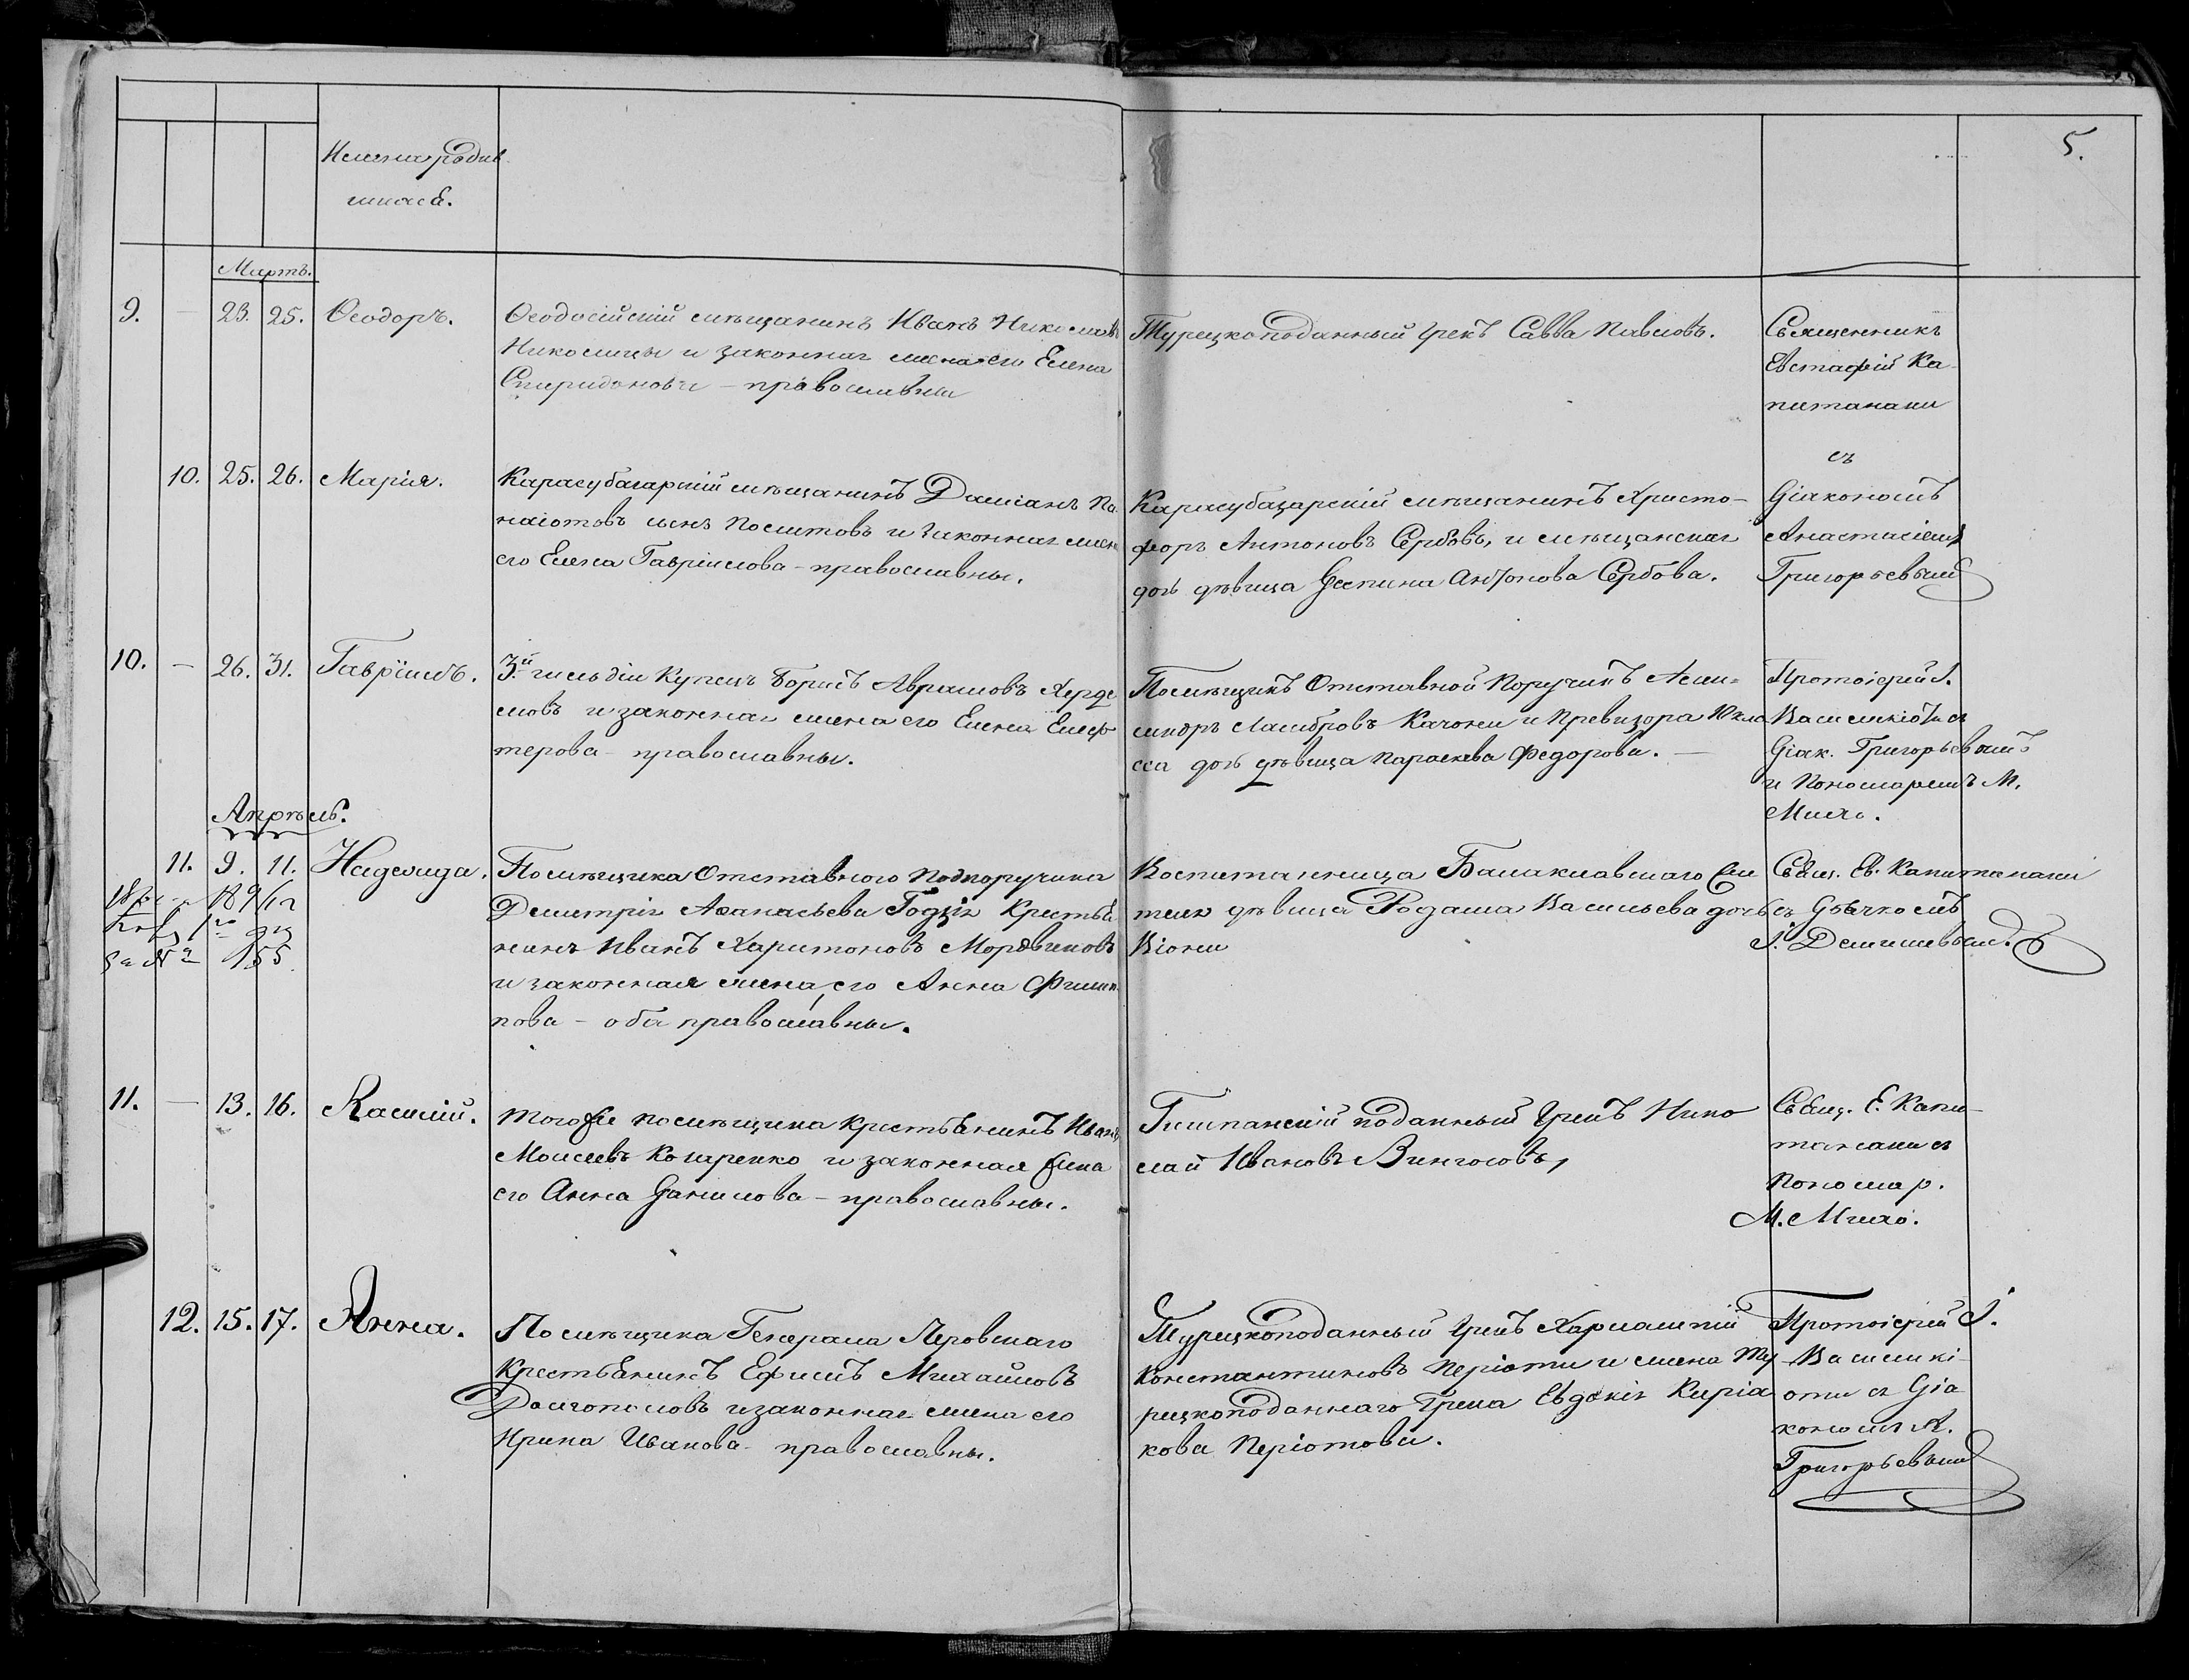 5.
Имена родив
шихся.
Мартъ.
9. — 23. 25. Ѳеодоръ.
Ѳеодосійскій мѣщанинъ Иванъ Николаевъ
и законная жена его Елена
Спиридонова – православны
Турецкоподанный грекъ Савва Павловъ.
Священникъ
Евстафій Ка-
питанаки
10. 25. 26. Марія.
Карасубазарскій мѣщанинъ Даміанъ Па
наіотовъ сынъ и законная жена
его Елена Гавріилова – православны.
Карасубазарскій мѣщанинъ Христо-
форъ Антоновъ Сербовъ, и мѣщанская
дочь дѣвица Антонова Сербова.
съ
Діакономъ
Анастасіемъ
Григорьевымъ
10. — 26. 31. Гавріилъ.
3й гильдіи Купецъ Борисъ Аврамовъ
и законная жена его Елена Елеф
терова – православны.
Помѣщикъ Отставной Поручикъ Алек-
сандръ Ламбровъ Качони и Провизора
дочь дѣвица Параскева Федорова. —
Протоіерей І.
Василикіоти съ
Діак. Григорьевымъ
и Пономаремъ М.
Михо.
Апрѣль.
11. 9. 11. Надежда.
Помѣщика Отставного Подпоручика
Димитрія Аѳанасьева Крестья
нинъ Иванъ Харитоновъ Мордвиновъ
и законная жена его Анна Филип
пова – оба православны.
Воспитанница Балаклавскаго
дѣвица Васильева дочь
Кіони
Свящ. Ев. Капитанаки
съ Дьячкомъ
І. Демишевым.
155
11. — 13. 16. Василій.
Тогоже помѣщика Крестьянинъ Иванъ
Моисеевъ и законная жена
его Анна Данилова – православны.
Гишпанскій поданный Грекъ Нико
лай Ивановъ
Свящ. Е. Капи-
танаки съ
Пономар.
М. Михо.
12. 15. 17. Анна.
Помѣщика Генерала Перовскаго
Крестьянинъ Ефимъ Михайловъ
Долгополовъ и законная жена его
Ирина Иванова – православны.
Турецкоподанный Грекъ Харлампій
Константиновъ Періоти и жена Ту
рецкоподаннаго Грека Евдокія Кирія
кова Періотова.
Протоіерей І.
Василикі-
оти съ Діа
кономъ А.
Григорьевымъ